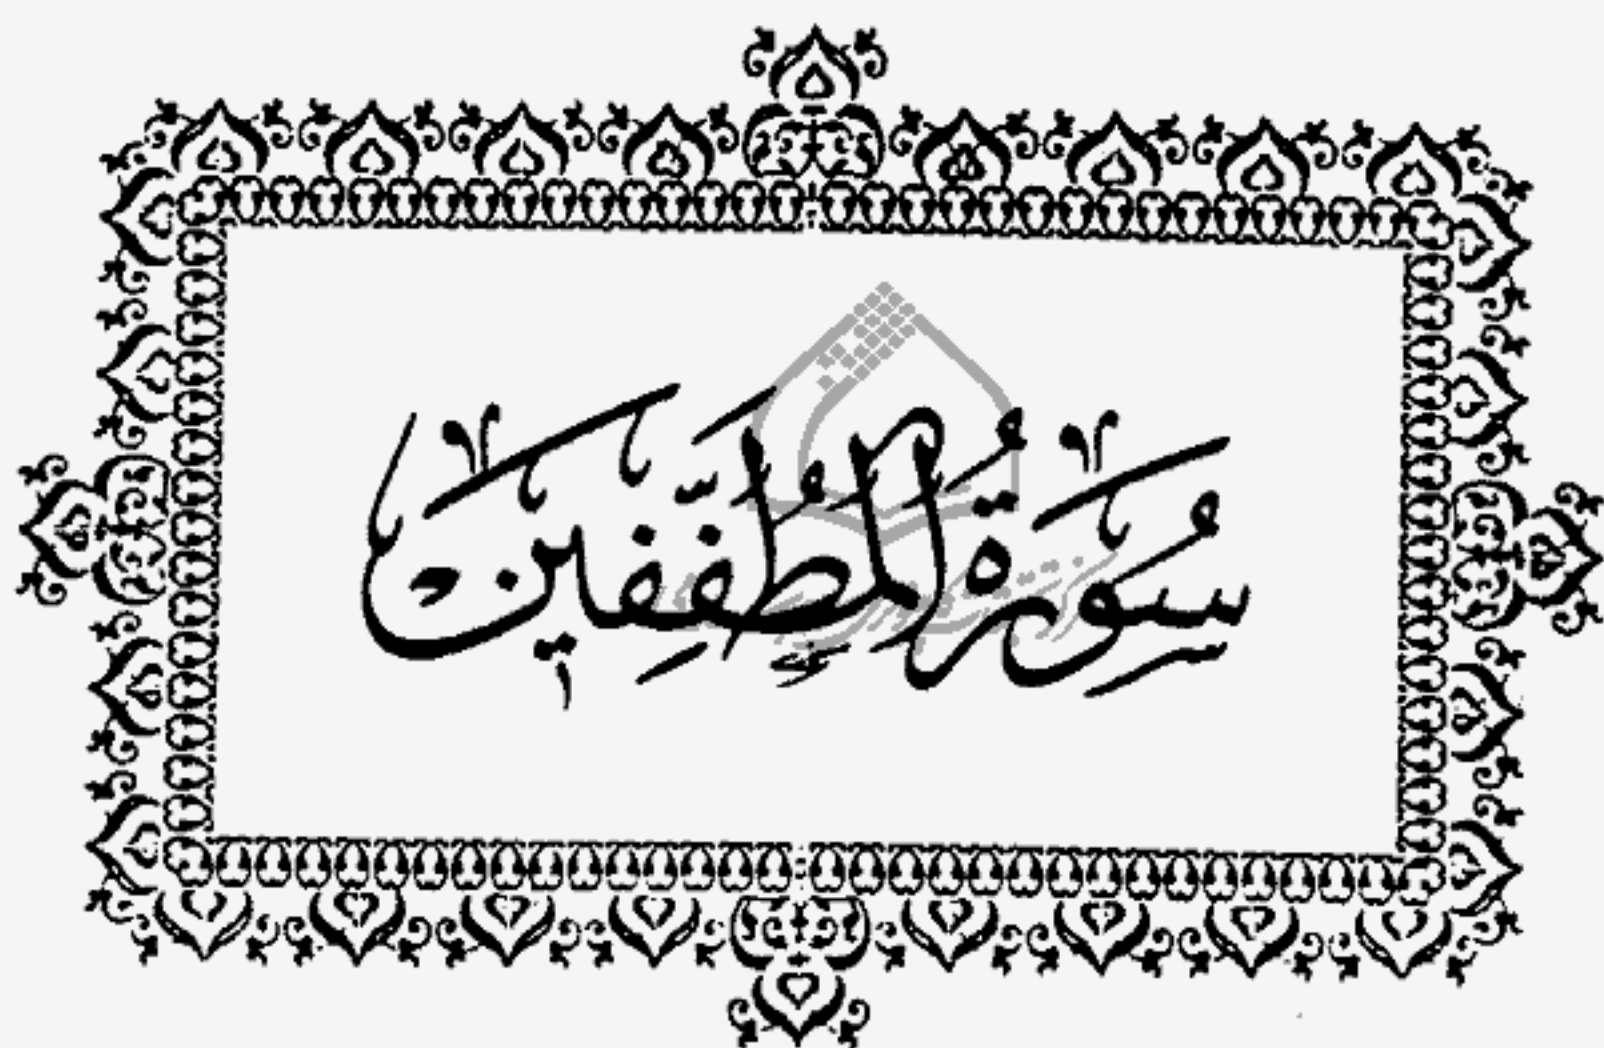 سُورَةُ المُطَفِّفِينَ